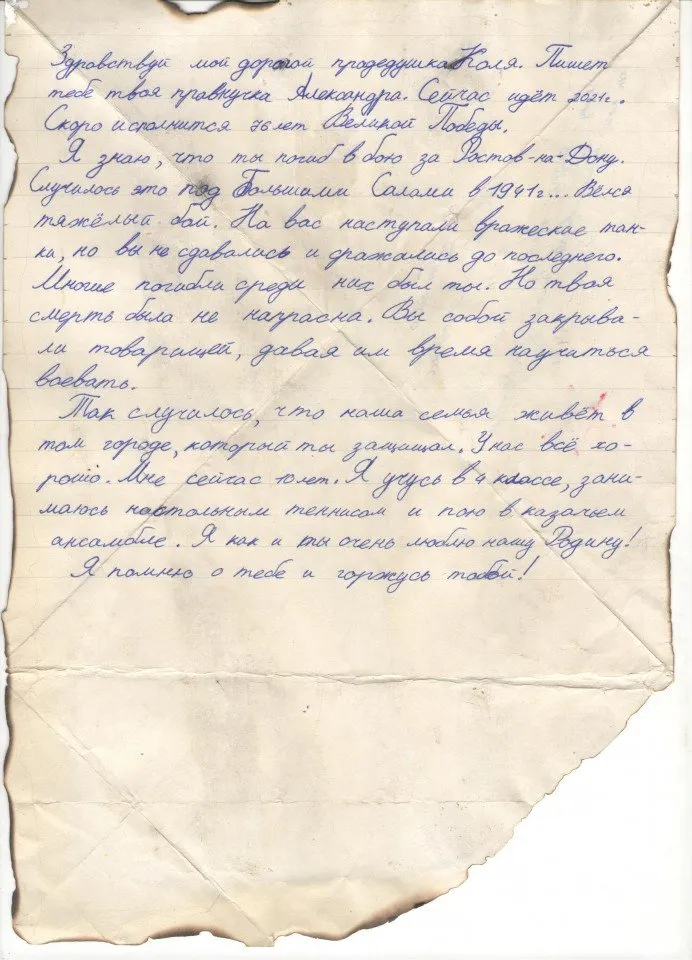 Здравствуй мой дорогой продедушка Коля. Пишет
тебе твоя правнучка Александра. Сейчас идёт 2021г.
Скоро исполнится 76 лет Великой Победы.
Я знаю, что ты погиб в бою за Ростов-на-Дону.
Случилось это под Большими Салами в 1941г... Вёлся
тяжёлый бой. На вас наступали вражеские тан-
ки, но вы не сдавались и сражались до последнего.
Многие погибли среди них был ты. Но твоя
смерть была не напрасна. Вы собой закрыва-
ли товарищей, давая им время научиться
воевать.
Так случилось, что наша семья живёт в
том городе, который ты защищал. У нас всё хо-
рошо. Мне сейчас 10 лет. Я учусь в 4 классе, зани-
маюсь настольным теннисом и пою в казачьем
ансамбле. Я как и ты очень люблю нашу Родину!
Я помню о тебе и горжусь тобой!